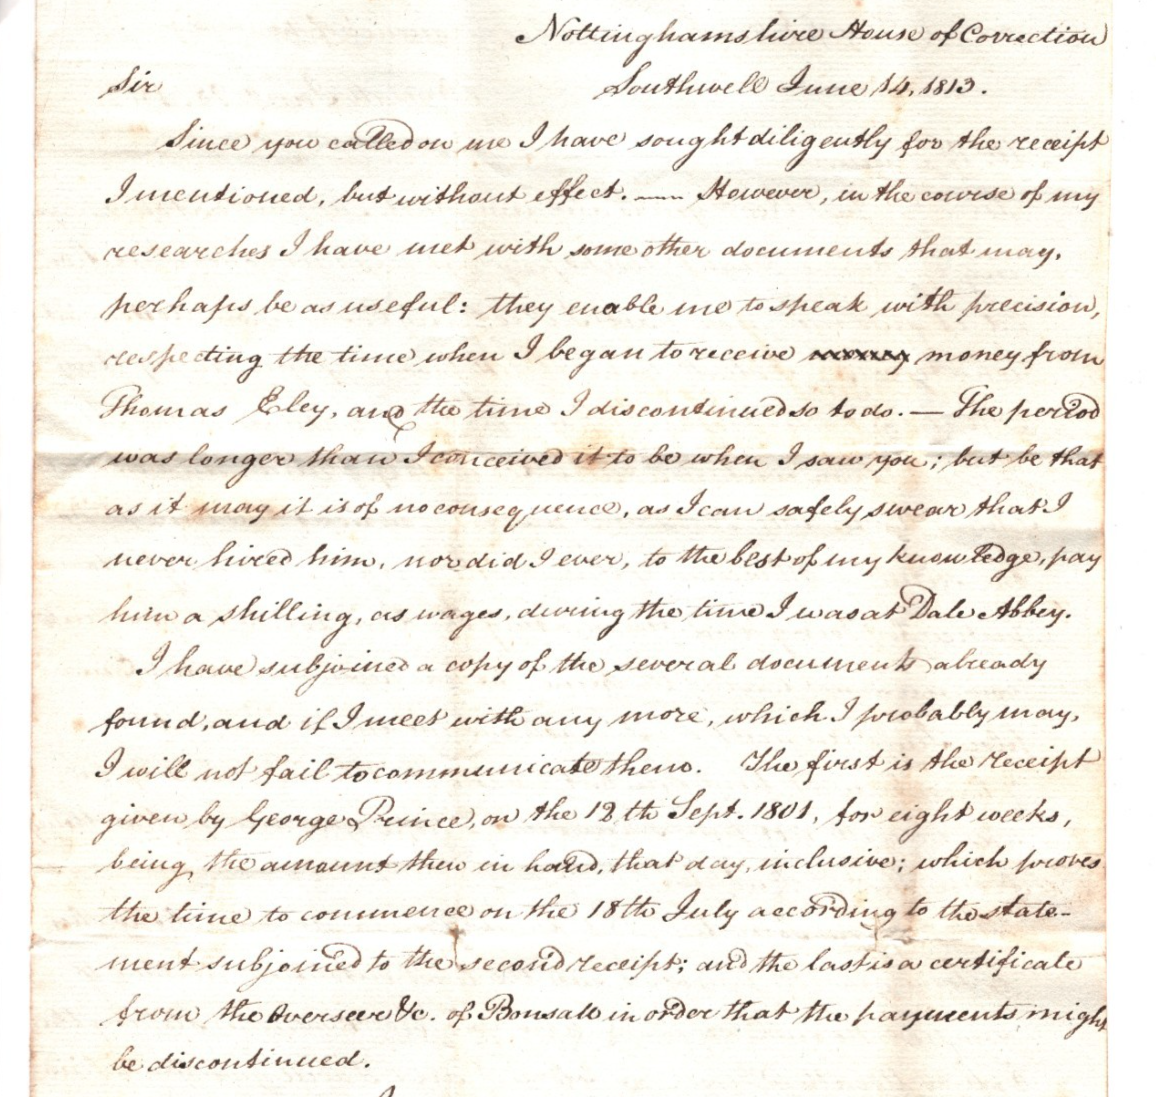 Nottinghamshire House of Correction
Sir Southwell June 14, 1813.
Since you called on me I have sought diligently for the receipt
I mentioned, but without effect. — However, in the course of my
researches I have met with some other documents that may,
perhaps be as useful: they enable me to speak with precision,
respecting the time when I began to receive money from
Thomas Eley, and the time I discontinued so to do. — The period
was longer than I conceived it to be when I saw you; but be that
as it may it is of no consequence, as I can safely swear that I
never hired him, nor did I ever, to the best of my knowledge, pay
him a shilling, as wages, during the time I was at Dale Abbey.
I have subjoined a copy of the several documents already
found, and if I meet with any more, which I probably may,
I will not fail to communicate them. The first is the receipt
given by George Prince, on the 12th Sept. 1801, for eight weeks,
being the amount then in hand, that day, inclusive; which proves
the time to commence on the 18th July according to the state-
ment subjoined to the second receipt; and the last is a certificate
from the Overseer &c. of Bonsall in order that the payments might
be discontinued.